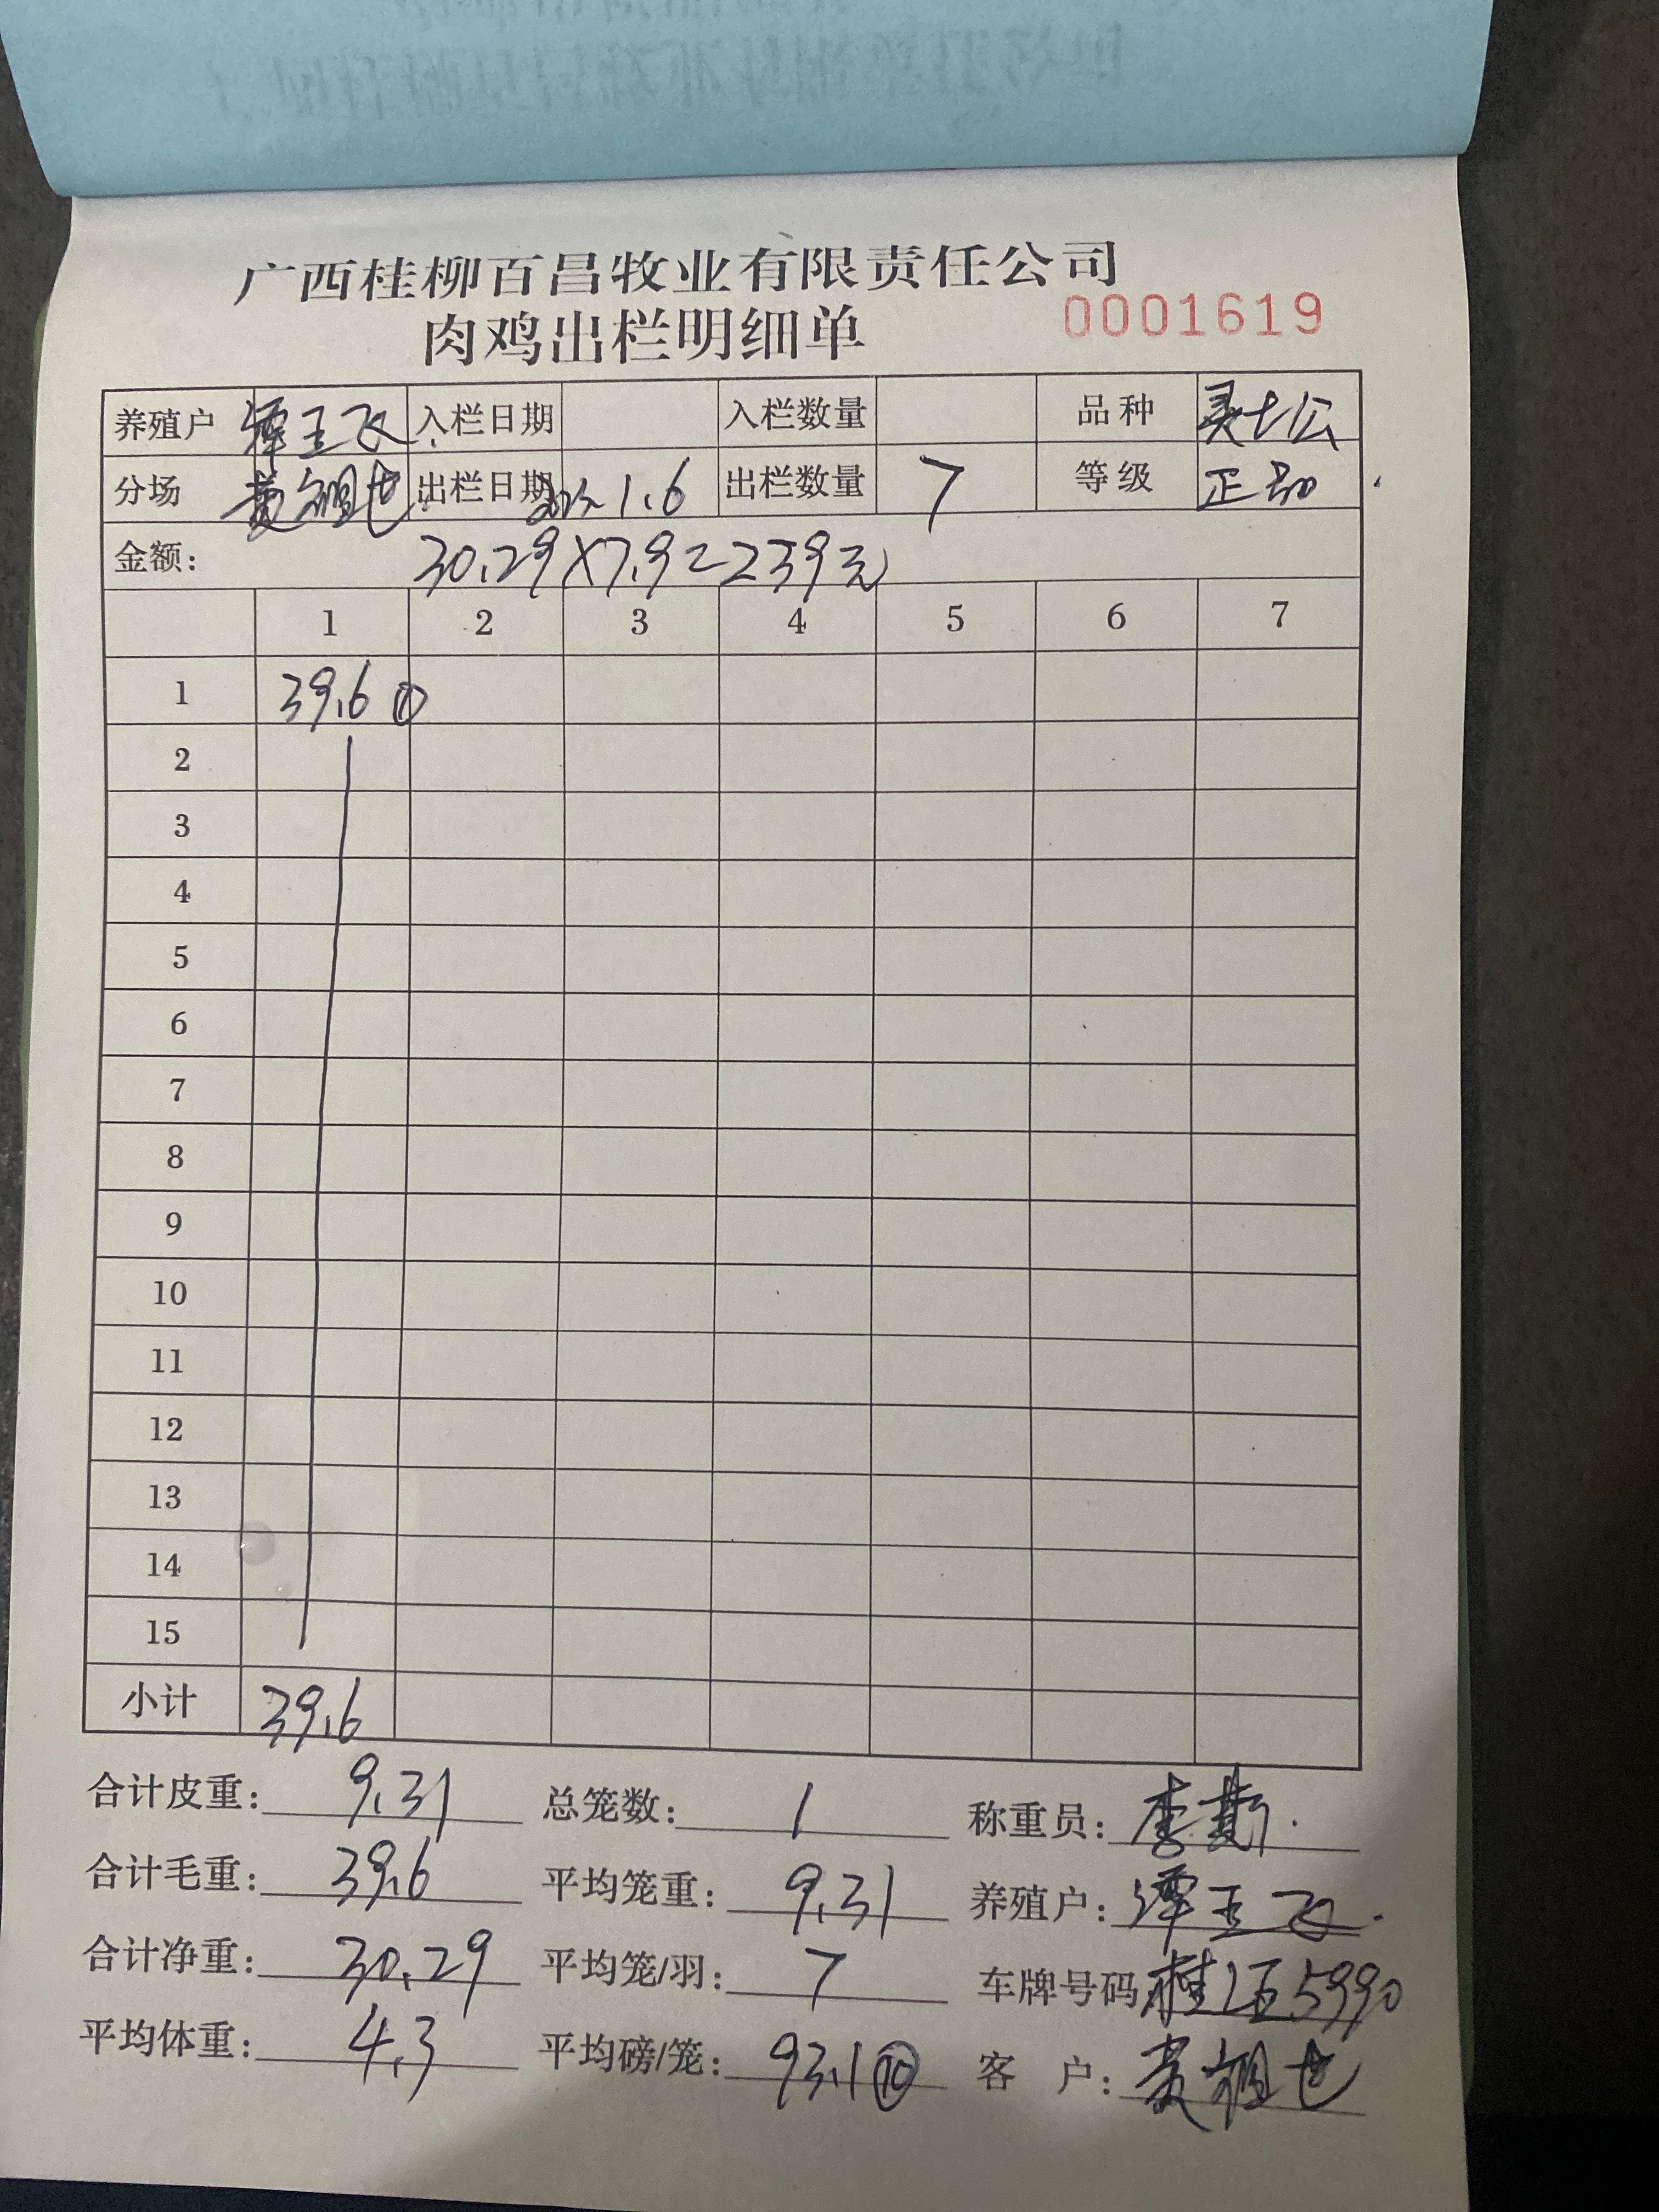 广西桂柳百昌牧业有限责任公司
肉鸡出栏明细单 0001619
养殖户 谭王飞 入栏日期 入栏数量 品种 公
分场 黄祖也 出栏日期 1.6 出栏数量 7 等级 正品
金额: 30.29×7.9=239元
1 2 3 4 5 6 7
1 39.6 ①
2
3
4
5
6
7
8
9
10
11
12
13
14
15
小计 39.6
合计皮重: 9.31 总笼数: 1 称重员: 李
合计毛重: 39.6 平均笼重: 9.31 养殖户: 谭王飞
合计净重: 30.29 平均笼/羽: 7 车牌号码 桂 5990
平均体重: 4.3 平均磅/笼: 93.1⑩ 客户: 黄祖也